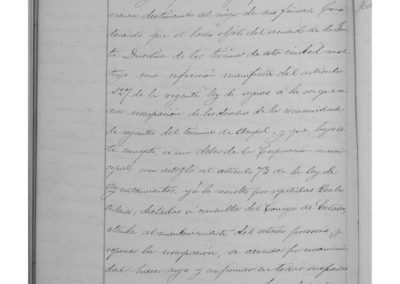 destinando al riego de sus fincas, consi
derando que el hecho objeto del acuerdo de la Jun
ta Directiva de los términos de esta ciudad consti
tuye una infracción manifiesta del artículo
227 de la vigente ley de aguas a la vez que u
na usurpación de los derechos de la comunidad
de regantes del término de y que bajo es
te concepto es un deber de la Corporación muni
cipal con arreglo al artículo 73 de la ley de
Ayuntamientos, ya lo resuelto por repetidas Reales
ordenes, dictadas a consulta del Consejo de Estado,
atender al mantenimiento del estado posesorio y
reponer la usurpación, se acuerda por unanimi
dad hacer suyo y confirmar en todas sus partes